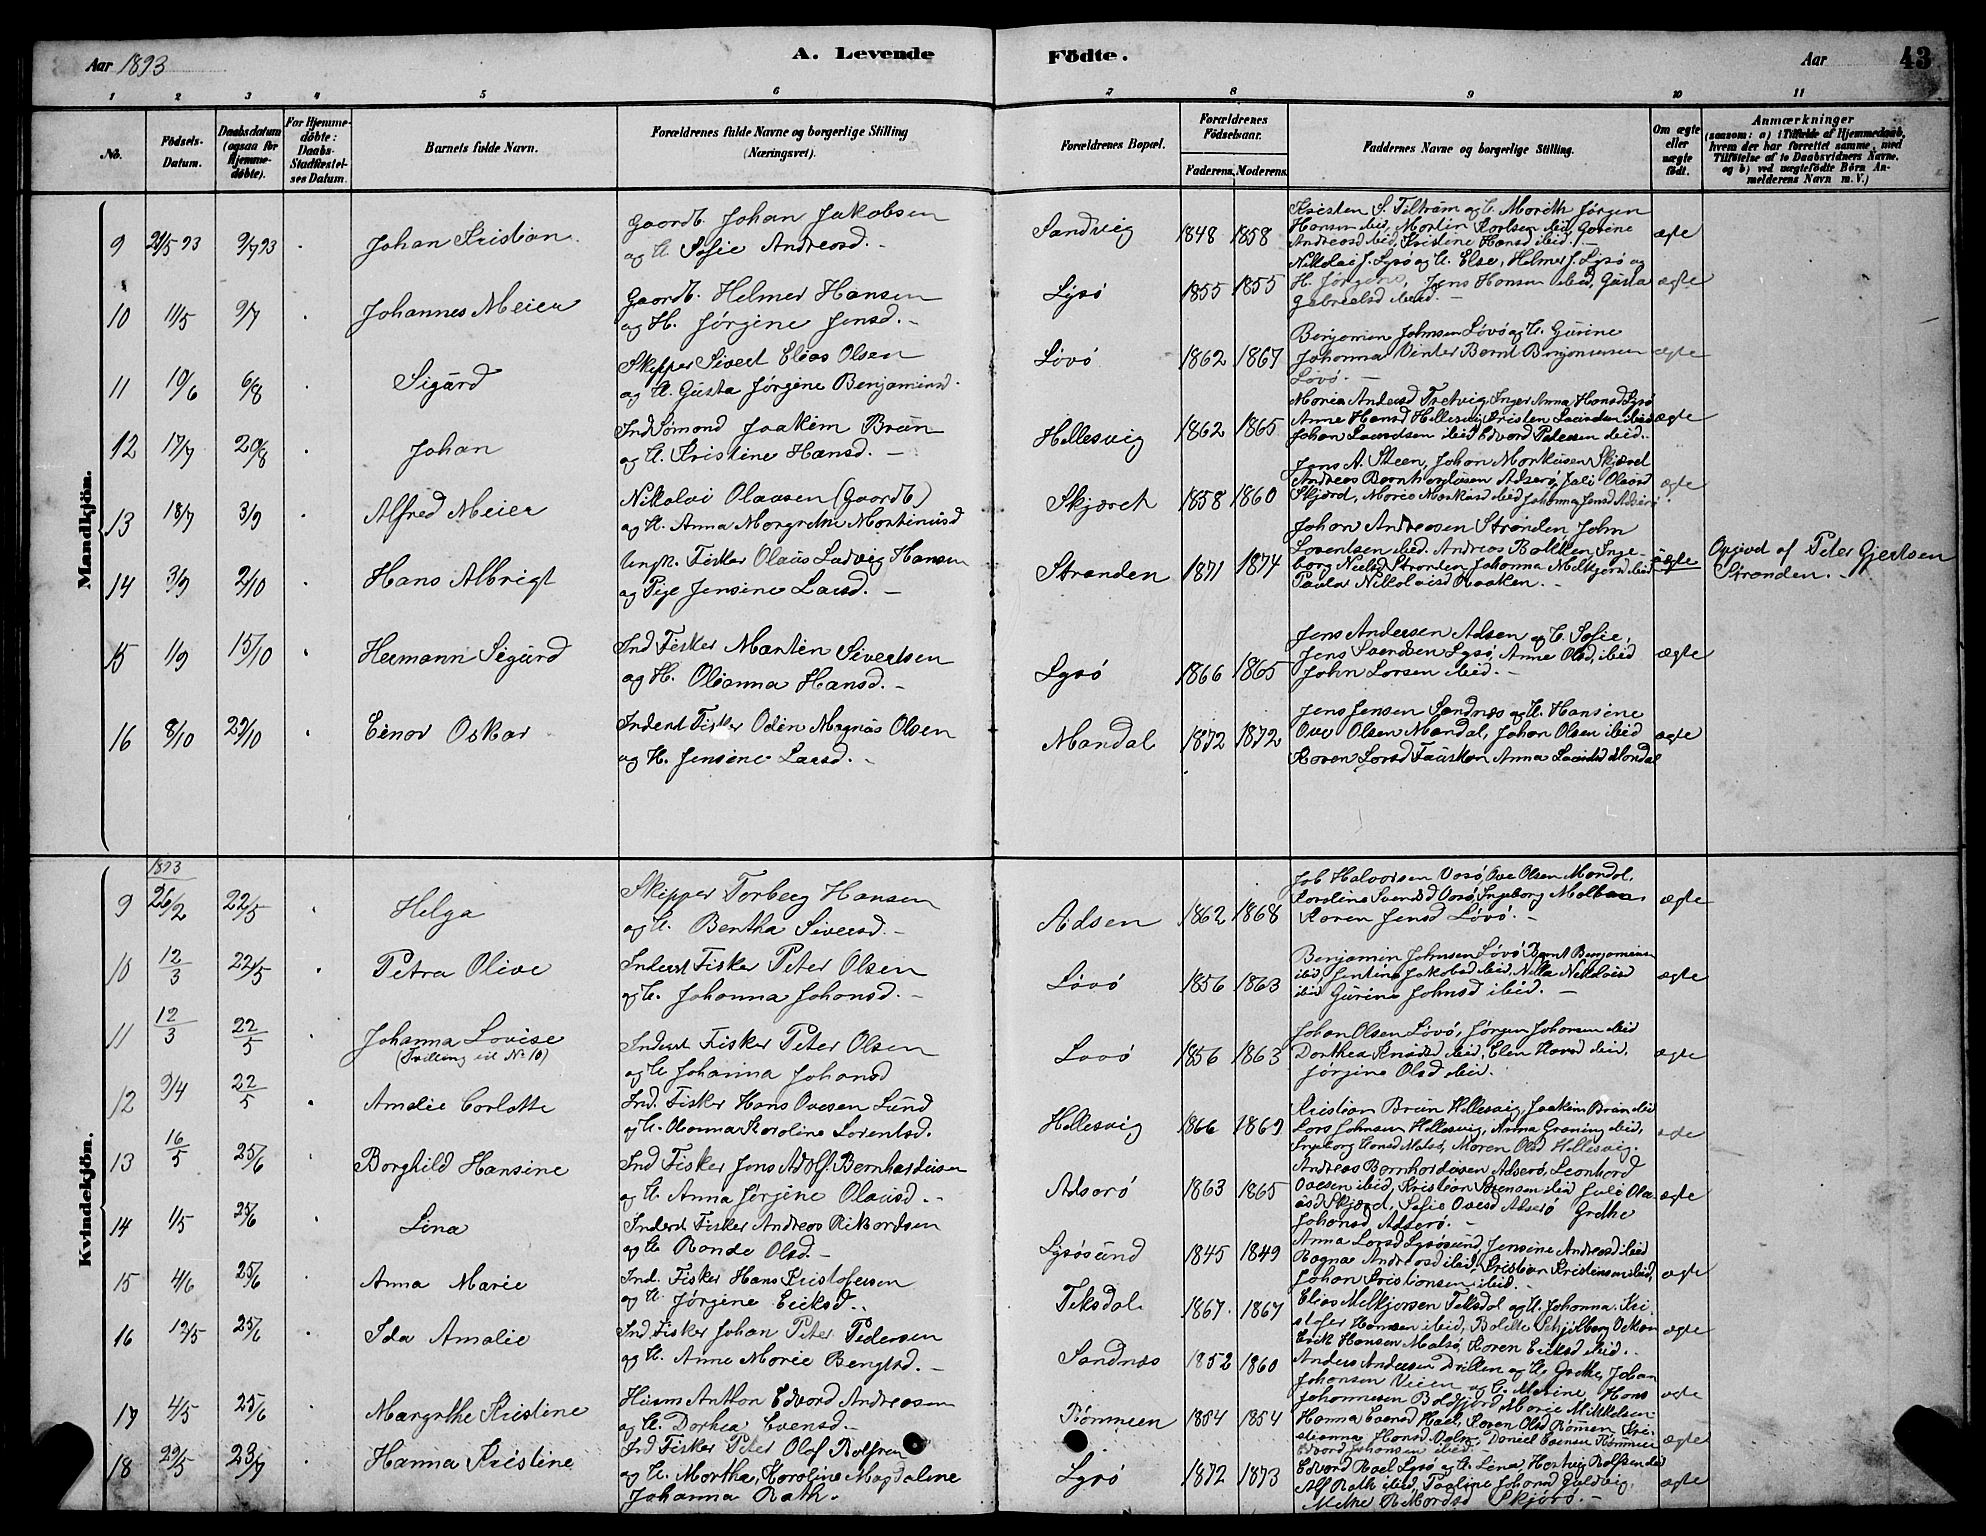 Aar 1893
A. Levende
Födte.
Aar
43
1 2 3 4 5 6 7 8 9 10 11
No.
Födsels-
Datum.
Daabsdatum
(ogsaa for
Hjemme-
döbte).
For Hjemme-
döbte:
Daabs-
Stadfæstel-
ses Datum.
Barnets fulde Navn.
Forældrenes fulde Navne og borgerlige Stilling
(Næringsvei).
Forældrenes Bopæl.
Forældrenes
Födselsaar.
Faderens. Moderens.
Faddernes Navne og borgerlige Stilling.
Om ægte
eller
uægte
födt.
Anmærkninger
(saasom: a) i Tilfælde af Hjemmedaab,
hvem der har forrettet samme, med
Tilföielse af to Daabsvidners Navne,
og b) ved uægtefödte Börn An-
melderens Navn m. V.)
Mandkjön.
9 21/5 93 9/7 93 Johan Kristian
Gaardb. Johan Jakobsen
og H. Sofie Andreasd. -
Sandvig 1848 1858
Hansen ibid, Martin Karlsen ibid,
Andreasd ibid, Kristine Hansd ibid. -
ægte
10 11/5 9/7 Johannes Meier
Gaardb. Helmer Hansen
og H. Jørgine Jensd. -
Lysø 1855 1855
Nikolai J. Lysø og H. Else, Helmer J. Lysø og
H. Jørgine, Jens Hansen ibid, Gusta
Gabrielsd ibid. -
ægte
11 19/6 6/8 Sigurd
Skipper Sivert Elias Olsen
og H. Gusta Jørgine Benjaminsd.
Løvø 1862 1867
Benjamin Johnsen Løvø og H. Gurine
Johanna Vinter Bernt Benjaminsen
Løvø. -
ægte
12 17/7 20/8 Johan
Ind Sømand Joakim Brun
og H. Kristine Hansd. -
Hellesvig 1862 1865
Anne Hansd Hellesvig, Kristen
Johan ibid Edvard Pedersen ibid.
ægte
13 18/7 3/9 Alfred Meier
Nikolai Olausen (Gaardb)
og H. Anna Margrethe Martinusd
Skjæret 1858 1860
Jens A. Steen, Johan Markusen Skjæret
Andreas Bernhardusen Adserø,
Skjæret, Marie Markusd ibid Johanna Jensd Adserø
ægte
14 3/9 2/10 Hans Albrigt
Ungk. Fisker Olaus Ludvig Hansen
og Pige Jensine Larsd. -
Stranden 1871 1874
Johan Andreasen Stranden, John
Lorentsen ibid. Andreas
borg Nielsd Stranden, Johanna ibid
Paula Nikolaisd -
uægte
Opgived af Peter Gjertsen
Stranden. -
15 1/9 15/10 Hermann Sigurd
Ind Fisker Martin Sivertsen
og H. Olianna Hansd. -
Lysø 1866 1865
Jens Andersen Adsen og H. Sofie,
Jens Lysø, Anne Olsd, ibid
John Larsen ibid. -
ægte
16 8/10 29/10 Einar Oskar
Inderst Fisker Odin Magnus Olsen
og H. Jensine Larsd. -
Mandal 1872 1872
Jens Jensen Sandnæs og H. Hansine
Ove Olsen Mandal, Johan Olsen ibid
Karen Larsd Anna Mandal
ægte
Kvindekjön.
1893
9 26/2 22/5 Helga
Skipper Torberg Hansen
og H. Bentha Siversd. -
Adsen 1862 1868
Job Halvorsen Vosø, Ove Olsen Mandal,
Karoline Vosø, Ingeborg
Karen Jensd Løvø. -
ægte
10 12/3 22/5 Petra Olive
Inderst Fisker Peter Olsen
og H. Johanna Johansd. -
Løvø 1856 1863
Benjamin Johnsen Løvø Bernt Benjaminsen
ibid, Jentine Jakobsd ibid, Nella Nikolaisd
ibid Gurine Johnsd ibid. -
ægte
11 12/3 22/5 Johanna Lovise
(Tvilling til No 10)
Inderst Fisker Peter Olsen
og H Johanna Johansd
Løvø 1856 1863
Johan Olsen Løvø, Jørgen Johansen ibid
Dorthea Knudsd ibid, Elen ibid,
Jørgine Olsd ibid.
ægte
12 9/4 22/5 Amalie Carlotte
Ind. Fisker Hans Ovesen Lund
og H. Olianna Karoline Lorentsd.
Hellesvig 1866 1869
Kristian Brun Hellesvig, Joakim Brun ibid
Lars Johnsen Hellesvig, Anna Graning ibid,
Ingeborg Hansd Maren Olsd Hellesvig.
ægte
13 16/5 25/6 Borghild Hansine
Ind Fisker Jens Adolf Bernhardusen
og H. Anna Jørgine Olausd. -
Adserø 1863 1865
Andreas Bernhardusen Adserø, Leonhard
Ovesen ibid, Kristian Sørensen ibid
Sofie Ovesd Adserø Grethe
Johansd Adserø. -
ægte
14 1/5 25/6 Lina
Inderst Fisker Andreas Rikardsen
og H Rande Olsd. -
Lysøsund 1845 1849
Anna Larsd Lysøsund, Jensine Andreasd ibid
Ragna Andreasd ibid, Kristian Kristensen ibid,
Johan Kristiansen ibid. -
ægte
15 4/6 25/6 Anna Marie
Ind. Fisker Hans Kristofersen
og H. Jørgine Eriksd. -
Teksdal 1867 1867
Elias Melkjorsen Teksdal og H. Johanna, Kri-
stofer Hansen ibid,
Erik Hansen Karen Eriksd ibid. -
ægte
16 12/5 25/6 Ida Amalie
Ind. Fisker Johan Peter Pedersen
og H. Anne Marie Bengtsd. -
Sandnæs 1852 1860
Anders Andersen og H. Grethe, Johan
Johansen Veien og H. Marine, Hans
Johannesen Marie Mikkelsen
ægte
17 4/5 25/6 Margrethe Kristine
Husm Anthon Edvard Andreasen
og H. Dorthea Evensd. -
Rømmen 1854 1854
Hanna Evensd Karen Olsd Rømmen, Kri-
stianna Hansd Daniel Evensen Rømmen
Edvard Johansen ibid.
ægte
18 22/5 23/7 Hanna Kristine
Ind Fisker Peter Olaf Rolfsen
og H. Martha Karoline Magdaline
Johanna Rath. -
Lysø 1872 1873
Edvard Lysø og H. Lina Hartvig Rolfsen ibid
Alf Rath ibid, Pauline Johansd
Mette Rikardsd -
ægte